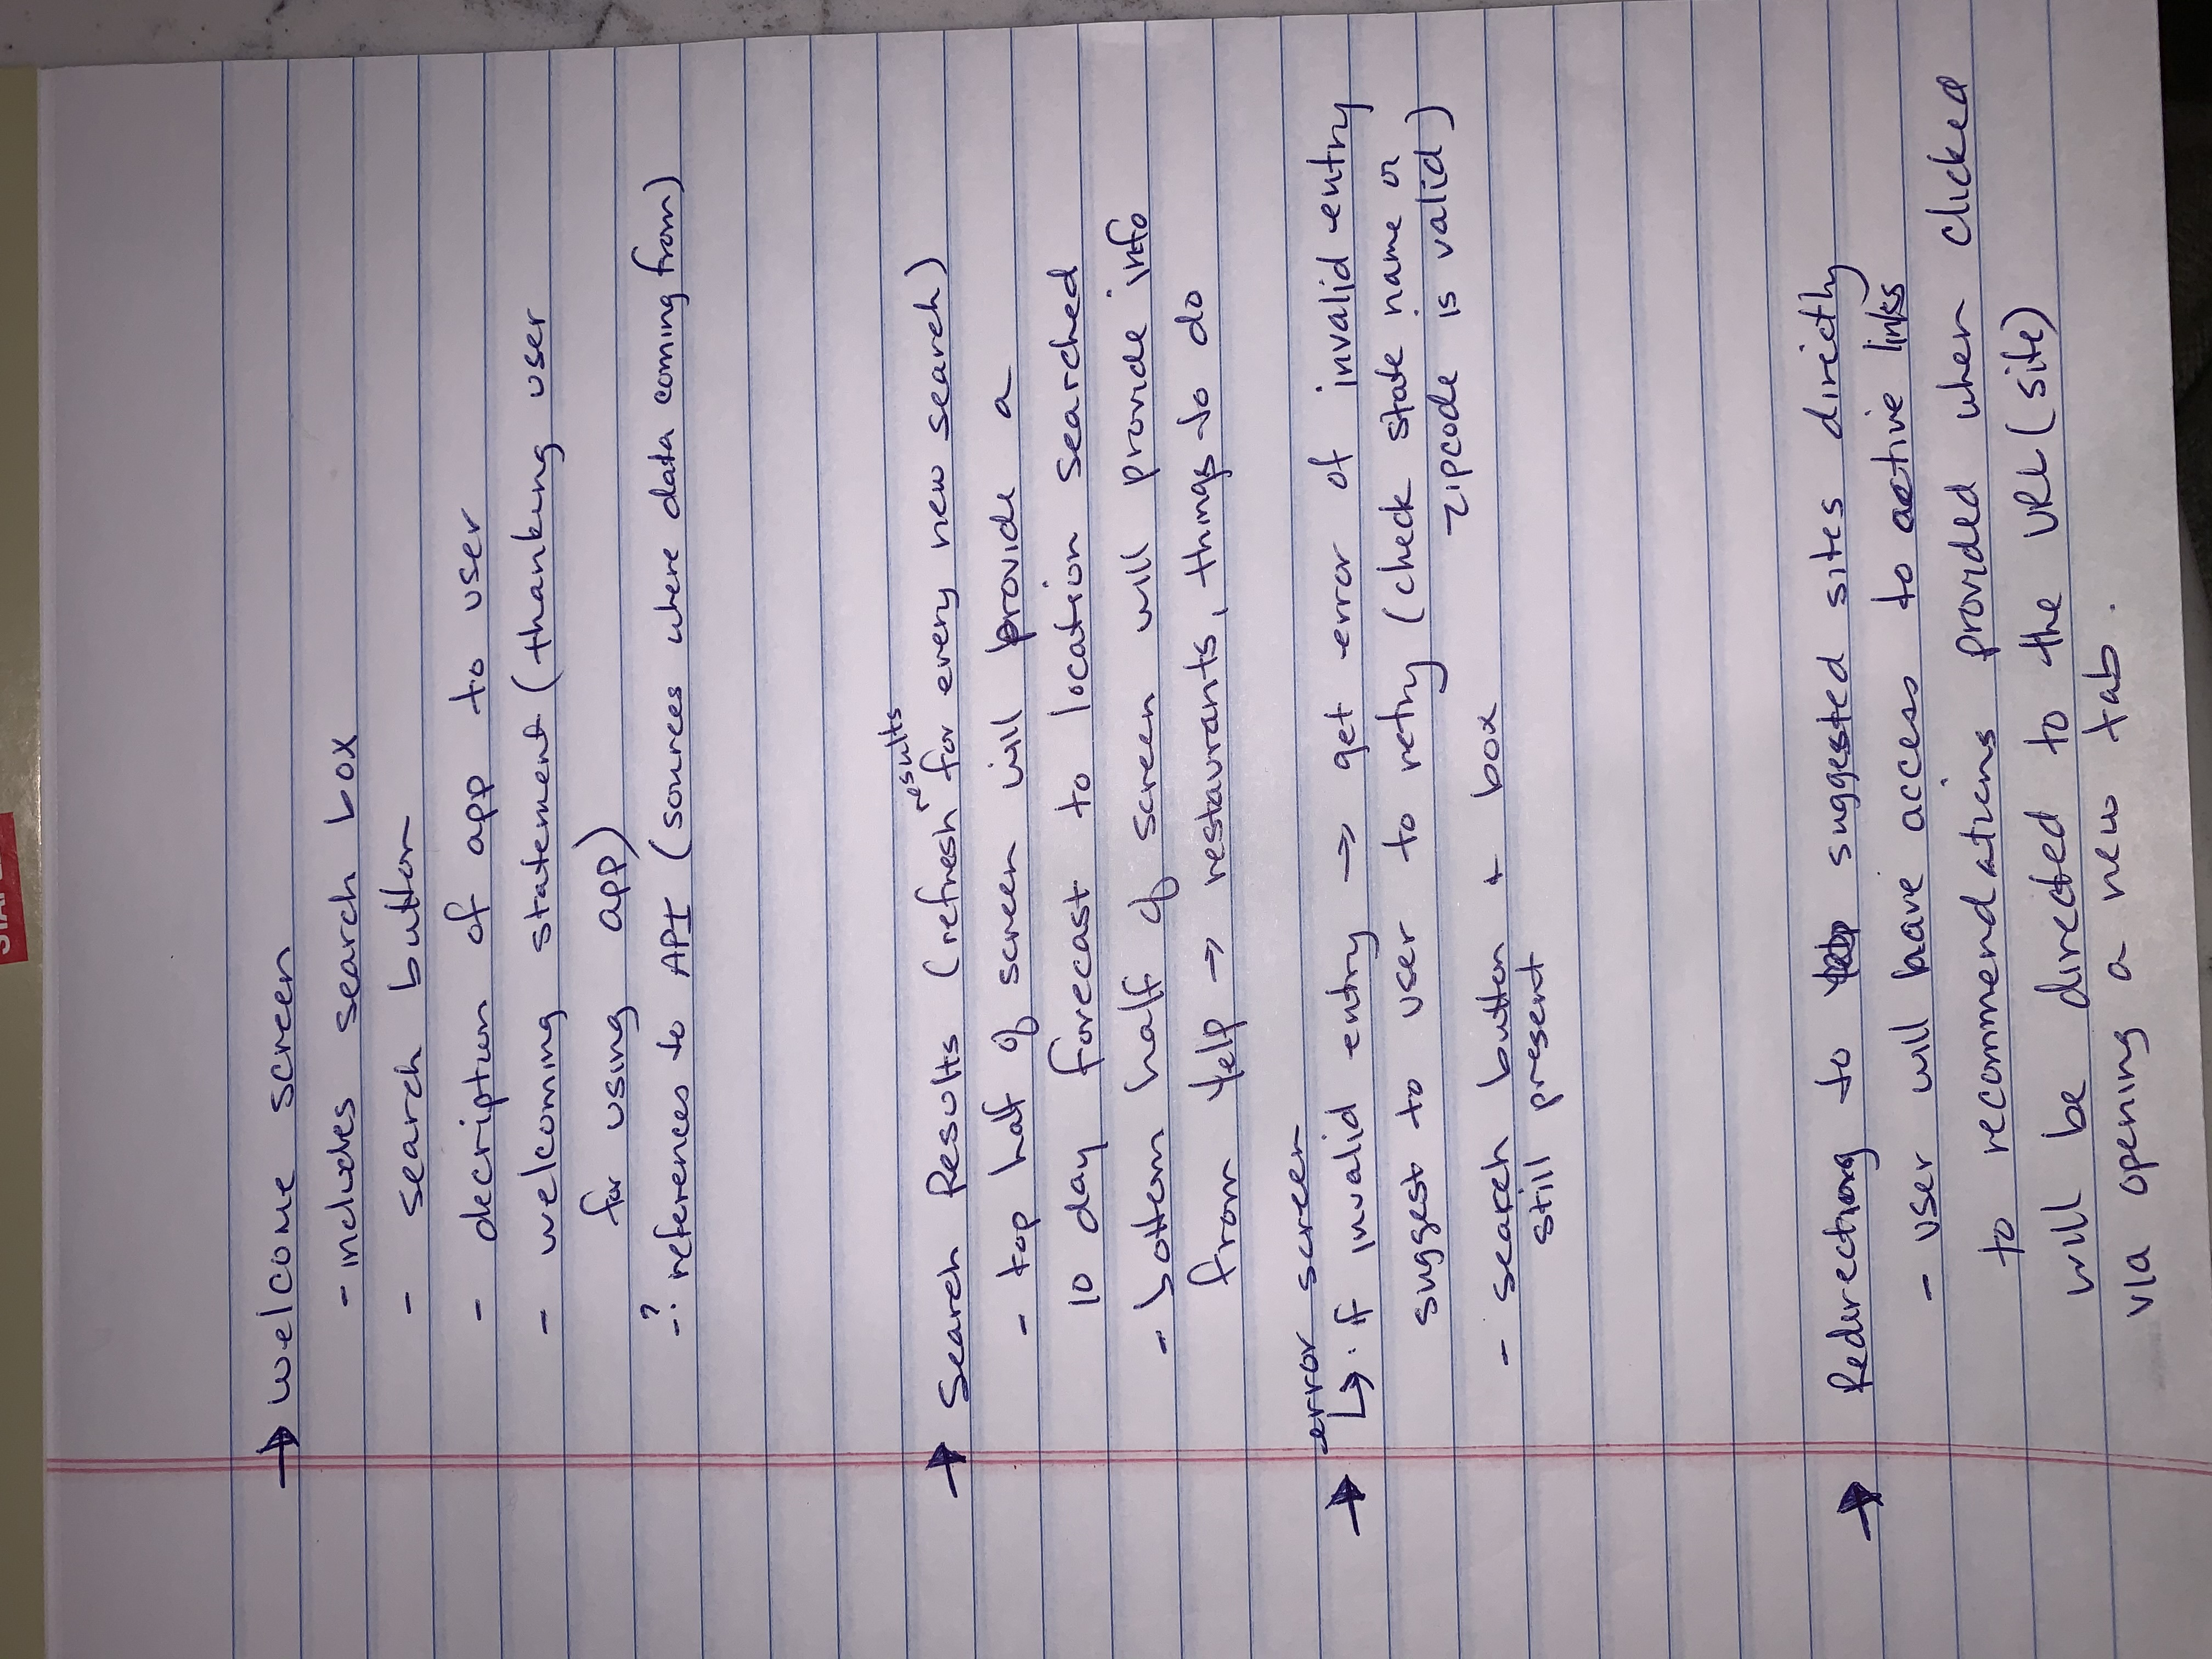 → welcome screen
- includes search box
- search button
- decription of app to user
- welcoming statement (thanking user
for using app)
-? references to API (sources where data coming from)
results
→ Search Results (refresh for every new search)
- top half of screen will provide a
10 day forecast to location searched
- bottom half of screen will provide info
from Yelp → restaurants, things to do
error screen
→ ↳ if invalid entry → get error of invalid entry
suggest to user to retry (check state name or
zipcode is valid)
- search button + box
still present
→ Redirecting to suggested sites directly
- user will have access to active links
to recommendations provided when clicked
will be directed to the URL (site)
via opening a new tab.